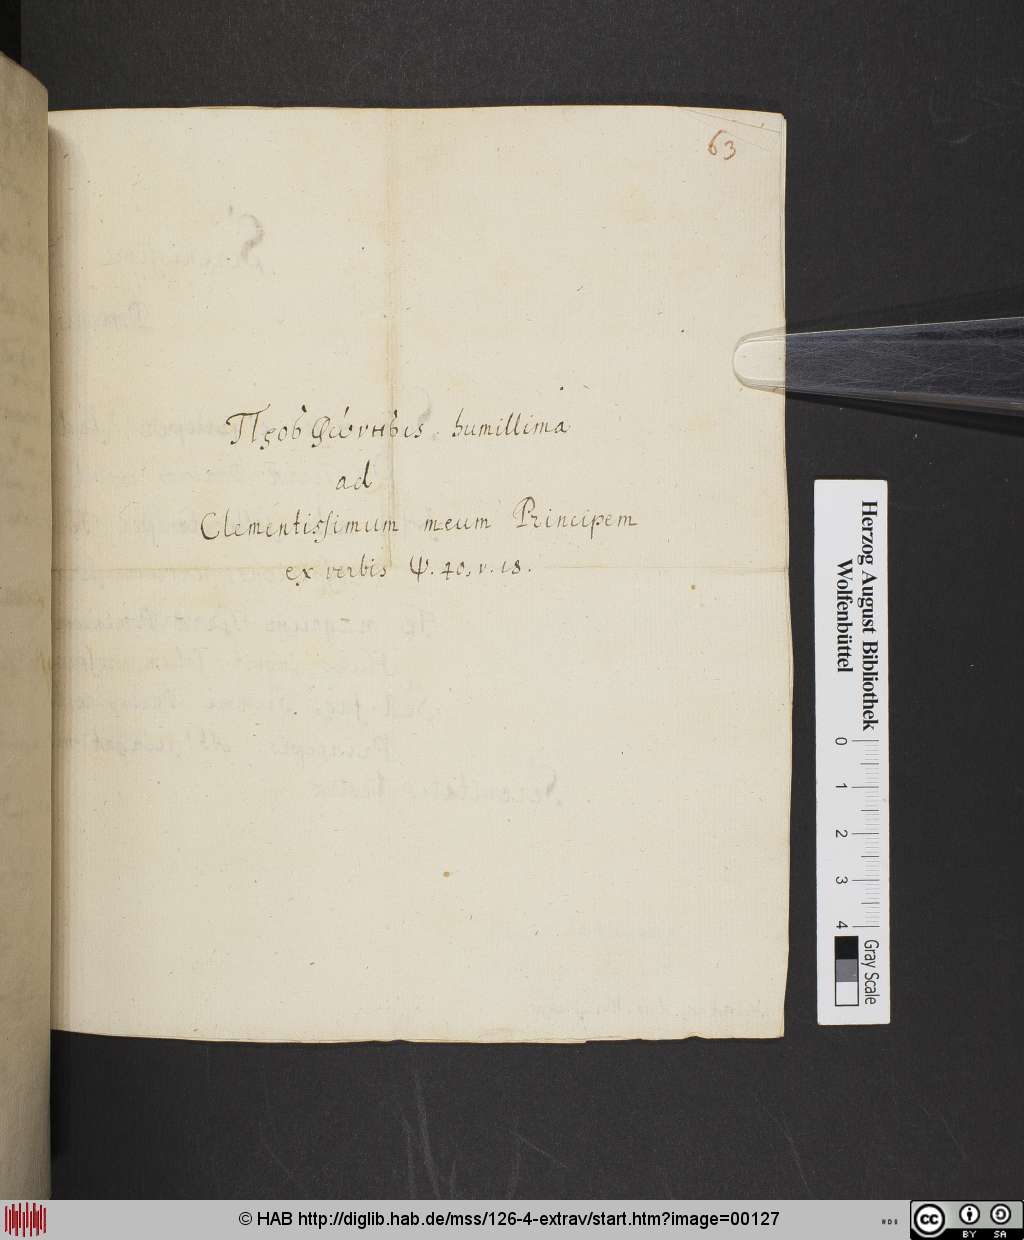 63
Προσφώνησις humillima
ad
Clementissimum meum Principem
ex verbis Ψ. 40. v. 18.
Herzog August Bibliothek
Wolfenbüttel
0 1 2 3 4
Gray Scale
© HAB http://diglib.hab.de/mss/126-4-extrav/start.htm?image=00127
cc BY SA